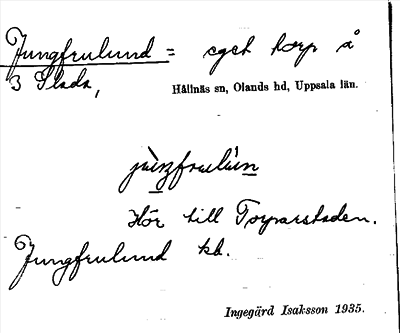 Jungfrulund = eget torp å
3 Slada,
Hållnäs sn, Olands hd, Uppsala län.
Hör till Torparstaden.
Jungfrulund kb.
Ingegärd Isaksson 1935.